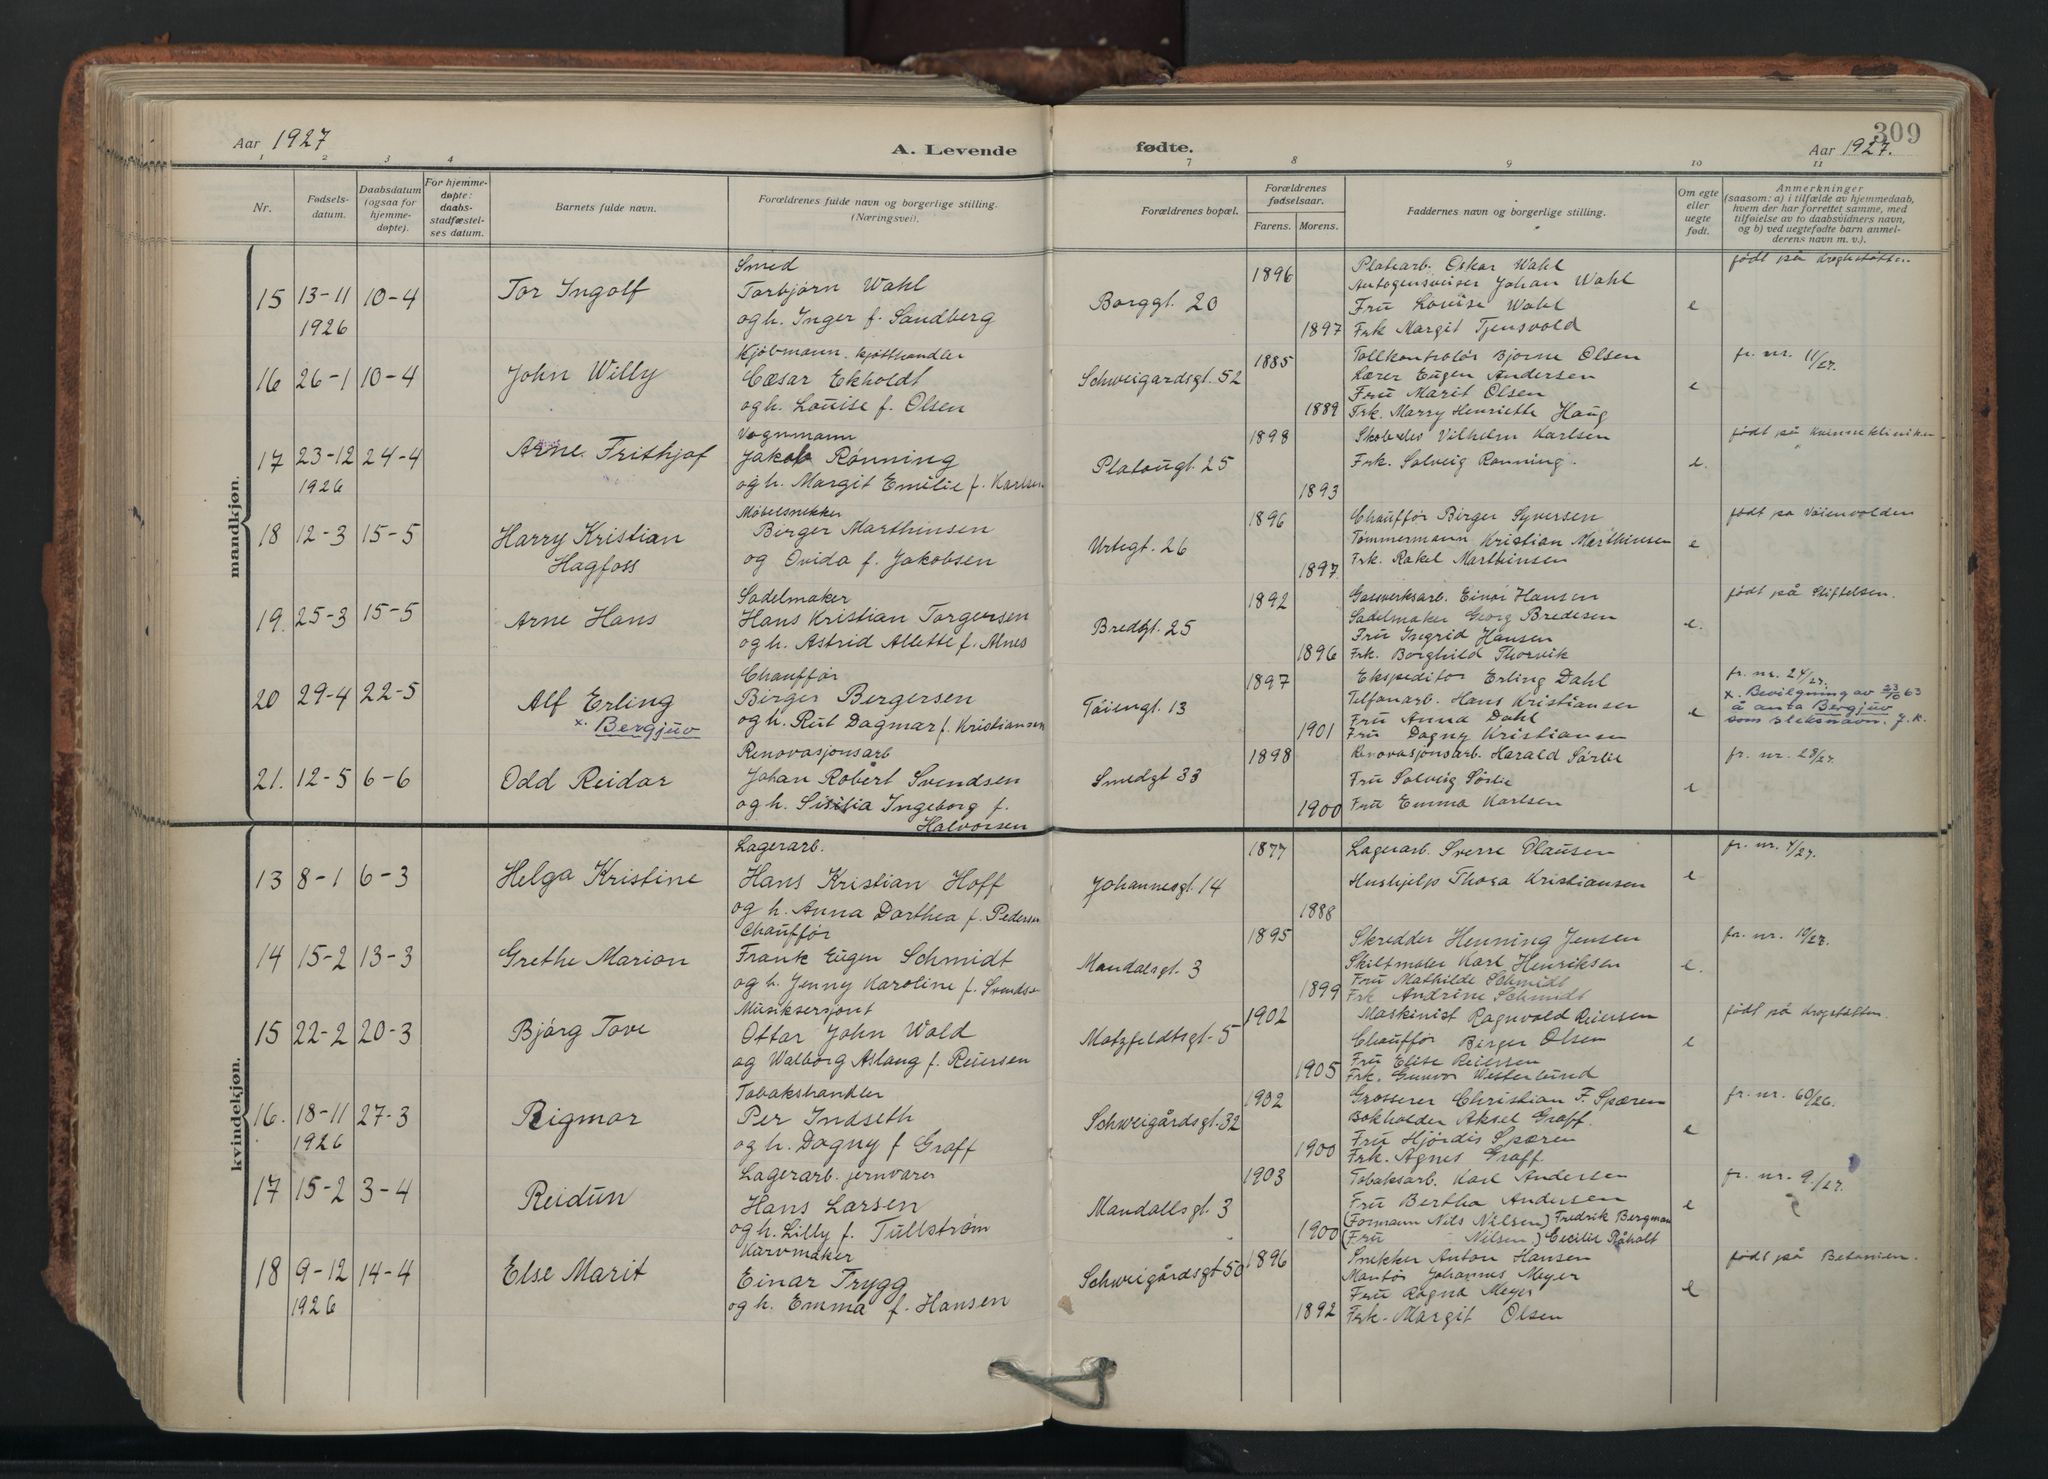 309
Aar 1927 A. Levende fødte. Aar 1927.
1 2 3 4 7 8 9 10 11
Nr.
Fødsels-
datum.
Daabsdatum
(ogsaa for
hjemme-
døpte).
For hjemme-
døpte:
daabs-
stadfæstel-
ses datum.
Barnets fulde navn.
Forældrenes fulde navn og borgerlige stilling.
(Næringsvei).
Forældrenes bopæl.
Forældrenes
fødselsaar.
Farens. Morens.
Faddernes navn og borgerlige stilling.
Om egte
eller
uegte
født.
Anmerkninger
(saasom: a) i tilfælde av hjemmedaab,
hvem der har forrettet samme, med
tilføielse av to daabsvidners navn,
og b) ved uegtefødte barn anmel-
derens navn m. v.).
mandkjøn.
15 13-11 10-4
1926
Tor Ingolf
Smed
Torbjørn Wahl
og h. Inger f. Sandberg
Borggt. 20
1896
1897
Platearb. Oskar Wahl
Autogensveiser Johan Wahl
Fru Louise Wahl
Frk Margit Tjensvold
e
født på
16 26-1 10-4
John Willy
Kjøbmann. kjøtthandler
Cæsar Ekholdt
og h. Louise f. Olsen
Schweigardsgt. 52
1885
1889
Tollkontrolør Bjarne Olsen
Lærer Eugen Andersen
Fru Marit Olsen
Frk. Marry Henriette Haug
e
fr. nr. 11/27.
17 23-12 24-4
1926
Arne Frithjof
Vognmann
Jakob Rønning
og h. Margit Emilie f. Karlsen
Platougt. 25
1898
1893
Vilhelm Karlsen
Frk. Solveig Rønning.
e.
født på Kvinneklinikken
18 12-3 15-5
Harry Kristian
Hagfoss
Møbelsnekker
Birger Marthinsen
og Ovida f. Jakobsen
Urtegt. 26
1896
1897.
Chauffør Birger Syversen
Tømmermann Kristian Marthinsen
Frk. Rakel Marthinsen
e
født på Vøienvolden
19. 25-3 15-5
Arne Hans
Sadelmaker
Hans Kristian Torgersen
og h. Astrid Alette f. Alnes
Bredgt. 25
1892
1896
Gassverksarb. Einar Hansen
Sadelmaker Georg Bredesen
Fru Ingrid Hansen
Frk. Borghild Thorvik
e.
født på Stiftelsen.
20 29-4 22-5
Alf Erling
x. Bergjuv
Chauffør
Birger Bergersen
og h. Rut Dagmar f. Kristiansen
Tøiengt. 13
1897
1901
Ekspeditør Erling Dahl
Telfonarb. Hans Kristiansen
Fru Anna Dahl
Fru Dagny Kristiansen
e
fr. nr. 24/27.
x. Bevilgning av 23/10 63
å anta Bergjuv
som slektsnavn. J.K.
21. 12-5 6-6
Odd Reidar
Renovasjonsarb
Johan Robert Svendsen
og h. Sisilia Ingeborg f.
Halvorsen
Smedgt 33
1898
1900
Renovasjonsarb. Harald Sørlie
Fru Solveig Sørlie
Fru Emma Karlsen
e
fr. nr. 28/27.
kvindekjøn.
13 8-1 6-3
Helga Kristine
Lagerarb.
Hans Kristian Hoff
og h. Anna Dorthea f. Pedersen
Johannesgt. 14
1877
1888
Lagerarb. Sverre Olausen
Hushjelp Thora Kristiansen
e
fr. nr. 4/27.
14 15-2 13-3
Grethe Marion
Chauffør
Frank Eugen Schmidt
og h. Jenny Karoline f. Svendsen
Mandalsgt. 3
1895
1899
Skredder Henning Jensen
Skiltmaler Karl Henriksen
Fru Mathilde Schmidt
Frk Andrine Schmidt
e.
fr. nr. 10/27.
15 22-2 20-3
Bjørg Tove
Musiksersjant
Ottar John Wold
og Walborg Aslaug f. Reiersen
Motzfeldtsgt. 5
1902
1905
Maskinist Ragnvald Reiersen
Chauffør Birger Olsen
Fru Elise Reiersen
Frk. Gunvor Westerlund
e
født på
16. 18-11 27-3
1926
Rigmor
Tobakshandler
Per Indseth
og h. Dagny f Graff
Schweigårdsgt. 32
1902
1900
Grosserer Christian F. Spæren
Bokholder Aksel Graff.
Fru Hjørdis Spæren
Frk. Agnes Graff
e
fr. nr. 60/26.
17 15-2 3-4
Reidun
Lagerarb. jernvarer
Hans Larsen
og h. Lilly f. Tullstrøm
Mandallsgt. 3
1903
1900
Tobaksarb. Karl Andersen
Fru Bertha Andersen
(Formann Nils Nilsen) Fredrik Bergman
(Fru Nilsen.) Cecilie Råholt
e
fr. nr. 9./27.
18 9-12 14-4
1926
Else Marit
Kurvmaker
Einar Trygg
og h. Emma f. Hansen
Schweigårdsgt 50
1896
1892
Snekker Anton Hansen
Montør Johannes Meyer
Fru Ragna Meyer
Frk. Margit Olsen
e
født på Betanien.